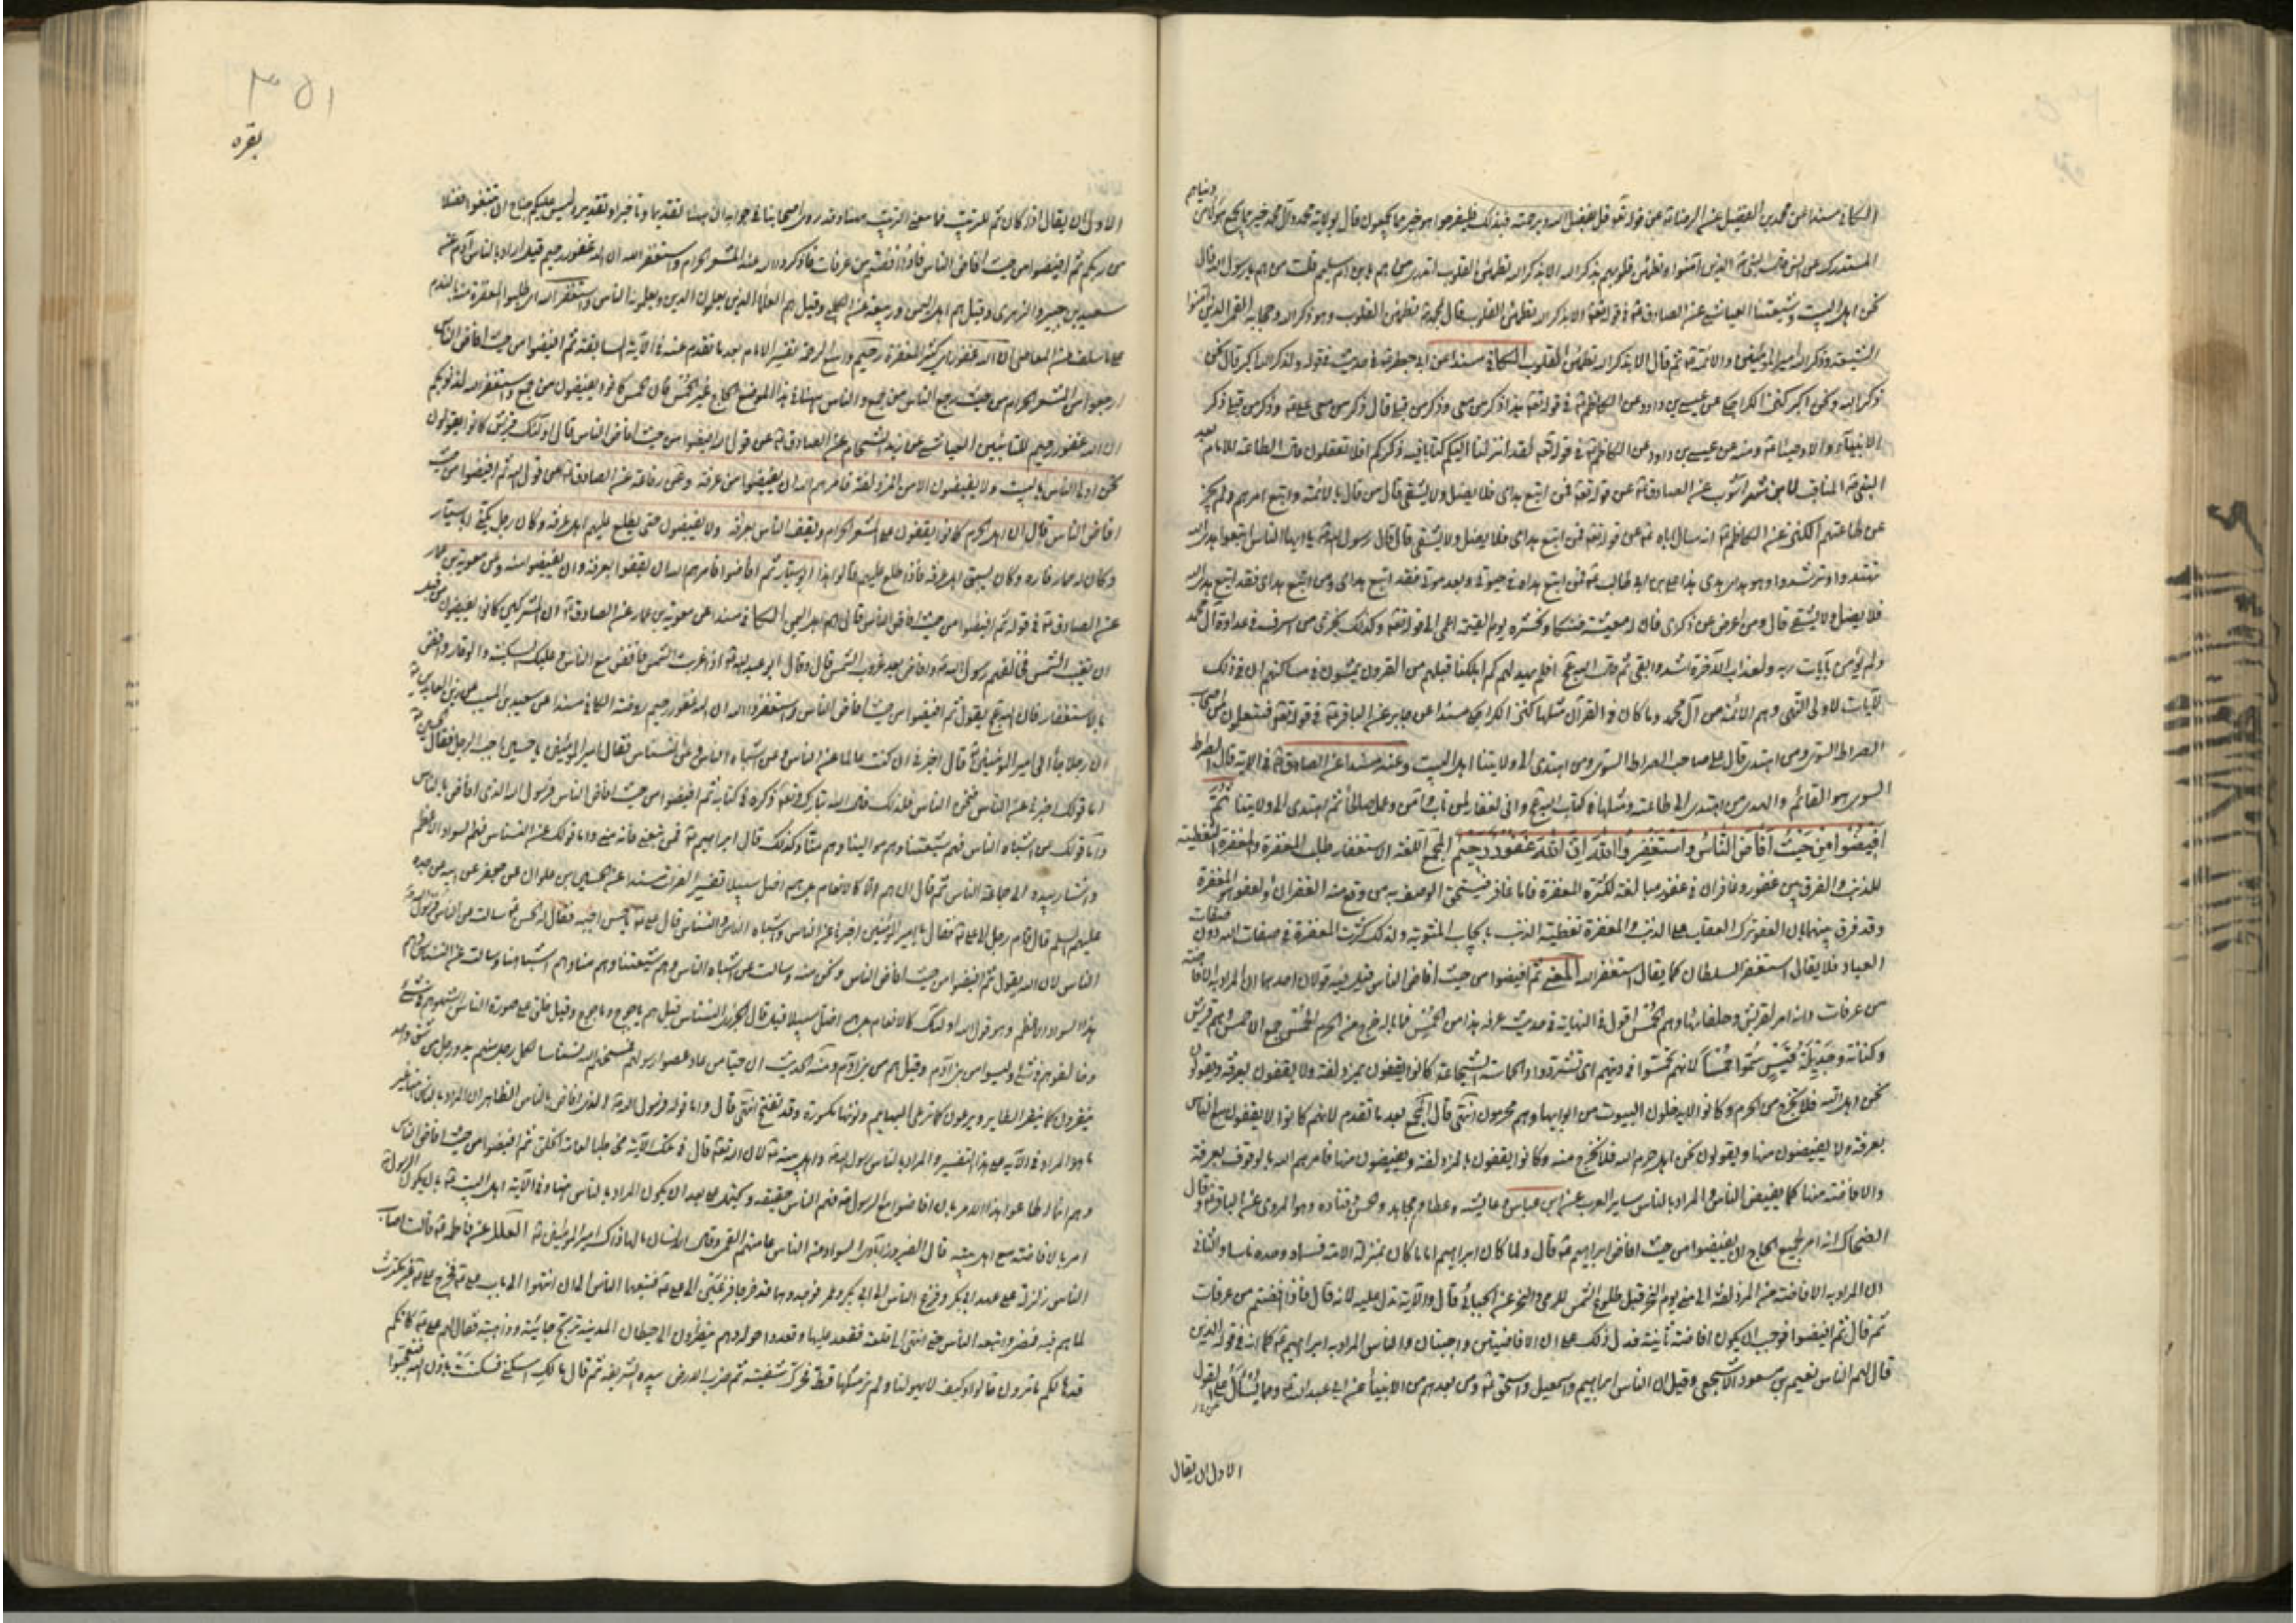 الكافي مسندا عن محمد بن الفضيل عن الرضا ع عن قوله تعه قل بفضل الله وبرحمته فبذلك فليفرحوا هو خير مما يجمعون قال بولاية محمد وآل محمد خير مما يجمع هؤلاء من
دنياهم
المستدرك عن الذين آمنوا وتطمئن قلوبهم بذكر الله الا بذكر الله تطمئن القلوب اتدري من هم يا بن ام سليم قلت من هم يا رسول الله قال
نحن اهل البيت وشيعتنا العياشي عن الصادق ع في قوله تعه الا بذكر الله تطمئن القلوب قال بمحمد ص تطمئن القلوب وهو ذكر الله وحجابه القمي الذين آمنوا
الشيعة وذكر الله امير المؤمنين والائمة ع ثم قال الا بذكر الله تطمئن القلوب الكافي مسندا عن ابي جعفر ع في حديث في قوله ولذكر الله اكبر قال نحن
ذكر الله ونحن اكبر كنز الكراجكي عن عيسى بن داود عن الكاظم ع في قوله تعه هذا ذكر من معي وذكر من قبلي قال ذكر من معي علي ع وذكر من قبلي ذكر
الانبياء والاوصياء ع ومنه عن عيسى بن داود عن الكاظم ع في قوله تعه لقد انزلنا اليكم كتابا فيه ذكركم افلا تعقلون قال الطاعة للامام بعد
النبي ص المناقب لابن شهر آشوب عن الصادق ع عن قوله تعه فمن اتبع هداي فلا يضل ولا يشقى قال من قال بالائمة واتبع امرهم ولم يجز
عن طاعتهم الكنز عن الكاظم ع انه سال اباه ع عن قوله تعه فمن اتبع هداي فلا يضل ولا يشقى قال قال رسول الله ص يا ايها الناس اتبعوا هدى الله
تهتدوا وترشدوا وهو هداي هدى علي بن ابي طالب ع فمن اتبع هداه في حيوتي وبعد موتي فقد اتبع هداي ومن اتبع هداي فقد اتبع هدى الله
فلا يضل ولا يشقى قال ومن اعرض عن ذكري فان له معيشة ضنكا ونحشره يوم القيمة اعمى الى قوله تعه وكذلك نجزي من اسرف في عداوة آل محمد
ولم يؤمن بآيات ربه ولعذاب الآخرة اشد وابقى ثم قال الله عج افلم يهد لهم كم اهلكنا قبلهم من القرون يمشون في مساكنهم ان في ذلك
لآيات لاولي النهى وهم الائمة من آل محمد وما كان في القرآن مثلها كنز الكراجكي مسندا عن جابر عن الباقر ع في قوله تعه فستعلمون من اصحاب
الصراط السوي ومن اهتدى قال علي صاحب الصراط السوي ومن اهتدى الى ولايتنا اهل البيت وعنه مسندا عن الصادق ع في الآية قال الصراط
السوي هو القائم والهدى من اهتدى الى طاعته ومثلها في كتاب الله عج واني لغفار لمن تاب وآمن وعمل صالحا ثم اهتدى الى ولايتنا ثم
افيضوا من حيث افاض الناس واستغفروا الله ان الله غفور رحيم المجمع اللغة الاستغفار طلب المغفرة والمغفرة التغطية
للذنب والفرق بين غفور وغافر ان في غفور مبالغة لكثرة المغفرة فاما غافر فيستحق الوصف به من وقع منه الغفران والعفو هو المغفرة
وقد فرق بينهما بان العفو ترك العقاب على الذنب والمغفرة تغطية الذنب بايجاب المثوبة ولذلك كثرت المغفرة في صفات الله دون صفات
العباد فلا يقال استغفر السلطان كما يقال استغفر الله المعنى ثم افيضوا من حيث افاض الناس قيل فيه قولان احدهما ان المراد به الافاضة
من عرفات وانه امر لقريش وحلفائها وهم الحمس اقول في النهاية في حديث عرفة هذا من الحمس فما باله خرج من الحرم الحمس جمع الاحمس وهم قريش
وكنانة وجديلة قيس سموا حمسا لانهم تحمسوا في دينهم اي تشددوا والحماسة الشجاعة كانوا يقفون بمزدلفة ولا يقفون بعرفة ويقولون
نحن اهل الله فلا نخرج من الحرم وكانوا لا يدخلون البيوت من ابوابها وهم محرمون انتهى قال المجمع بعد ما تقدم لانهم كانوا لا يقفون مع الناس
بعرفة ولا يفيضون منها ويقولون نحن اهل حرم الله فلا نخرج منه وكانوا يقفون بالمزدلفة ويفيضون منها فامرهم الله بالوقوف بعرفة
والافاضة منها كما يفيض الناس والمراد بالناس ساير العرب عن ابن عباس وعايشة وعطا ومجاهد والحسن وقتادة وهو المروي عن الباقر ع وقال
الضحاك انه امر لجميع الحاج ان يفيضوا من حيث افاض ابراهيم ع قال ولما كان ابراهيم اماما كان بمنزلة الامة فسماه وحده ناسا والثاني
ان المراد به الافاضة من المزدلفة الى منى يوم النحر قبل طلوع الشمس للرمي والنحر عن الجبائي قال والآية تدل عليه لانه قال فاذا افضتم من عرفات
ثم قال ثم افيضوا فوجب ان يكون افاضة ثانية فدل ذلك على ان الافاضتين واجبتان والناس المراد به ابراهيم ع كما انه في قوله الذين
قال لهم الناس نعيم بن مسعود الاشجعي وقيل ان الناس ابراهيم واسمعيل واسحق ع ومن بعدهم من الانبياء عن ابي عبد الله ع ومما يسأل على القول
الاول ان يقال
٣٥١
بقره
الاول ان يقال اذا كان ثم للترتيب فما معنى الترتيب ههنا وقد روى اصحابنا في جوابه ان ههنا تقديما وتاخيرا وتقديره ليس عليكم جناح ان تبتغوا فضلا
من ربكم ثم افيضوا من حيث افاض الناس فاذا افضتم من عرفات فاذكروا الله عند المشعر الحرام واستغفروا الله ان الله غفور رحيم قيل اراد بالناس آدم عن
سعيد بن جبير والزهري وقيل هم اهل اليمن وربيعة عن الكلبي وقيل هم العلماء الذين يعلمون الدين ويعلمونه الناس واستغفروا الله اي اطلبوا المغفرة منه بالندم
على ما سلف من المعاصي ان الله غفور اي كثير المغفرة رحيم واسع الرحمة تفسير الامام بعد ما تقدم عنه في الآية السابقة ثم افيضوا من حيث افاض الناس
ارجعوا من المشعر الحرام من حيث رجع الناس من جمع والناس ههنا في هذا الموضع الحاج غير الحمس فان الحمس كانوا لا يفيضون من جمع واستغفروا الله لذنوبكم
ان الله غفور رحيم للتائبين العياشي عن زيد الشحام عن الصادق ع عن قول الله افيضوا من حيث افاض الناس قال اولئك قريش كانوا يقولون
نحن اولى الناس بالبيت ولا يفيضون الا من المزدلفة فامرهم الله ان يفيضوا من عرفة وعن رفاعة عن الصادق ع عن قول الله ثم افيضوا من حيث
افاض الناس قال ان اهل الحرم كانوا يقفون على المشعر الحرام ويقف الناس بعرفة ولا يفيضون حتى يطلع عليهم اهل عرفة وكان رجل يكنى ابا سيار
وكان له حمار فاره وكان يسبق اهل عرفة فاذا طلع عليهم قالوا هذا ابو سيار ثم افاضوا فامرهم الله ان يقفوا بعرفة وان يفيضوا منه وعن معوية بن عمار
عن الصادق ع في قوله ثم افيضوا من حيث افاض الناس قال هم اهل اليمن الكافي مسندا عن معوية بن عمار عن الصادق ع ان المشركين كانوا يفيضون من قبل
ان تغيب الشمس فخالفهم رسول الله ص وافاض بعد غروب الشمس قال وقال ابو عبد الله ع اذا غربت الشمس فافض مع الناس وعليك السكينة والوقار وافض
بالاستغفار فان الله عج يقول ثم افيضوا من حيث افاض الناس واستغفروا الله ان الله غفور رحيم روضة الكافي مسندا عن سعيد بن المسيب عن زين العابدين ع
ان رجلا جاء الى امير المؤمنين ع قال اخبرني ان كنت عالما عن الناس وعن اشباه الناس وعن النسناس فقال امير المؤمنين يا حسين اجب الرجل فقال الحسين ع
اما قولك اخبرني عن الناس فنحن الناس فلذلك قال الله تبارك وتعه ذكره في كتابه ثم افيضوا من حيث افاض الناس فرسول الله الذي افاض بالناس
واما قولك عن اشباه الناس فهم شيعتنا وهم موالينا وهم منا وكذلك قال ابراهيم ع فمن تبعني فانه مني واما قولك عن النسناس فهم السواد الاعظم
واشار بيده الى جماعة الناس ثم قال ان هم الا كالانعام بل هم اضل سبيلا تفسير الفرات مسندا عن الحسين بن علوان عن جعفر عن ابيه عن جده
عليهم السلم قال قام رجل الى علي ع فقال يا امير المؤمنين اخبرنا عن الناس واشباه الناس والنسناس قال علي ع يا حسن اجبه فقال له الحسن ع سالت عن الناس فرسول الله ص
الناس لان الله يقول ثم افيضوا من حيث افاض الناس ونحن منه وسالت عن اشباه الناس وهم شيعتنا وهم منا وهم اشباهنا وسالت عن النسناس وهم
هذا السواد الاعظم وهو قول الله اولئك كالانعام بل هم اضل سبيلا قال الجزري النسناس قيل هم ياجوج وماجوج وقيل خلق على صورة الناس اشبهوهم في شئ
وخالفوهم في شئ وليسوا من بني آدم وقيل هم من بني آدم ومنه الحديث ان حيا من عاد عصوا رسولهم فمسخهم الله نسناسا لكل رجل منهم يد ورجل من شق واحد
ينقرون كما ينقر الطاير ويرعون كما ترعى البهايم ونونها مكسورة وقد تفتح انتهى قال واما قوله فرسول الله ص الذي افاض بالناس الظاهر ان المراد بالناس هنا غير
ما هو المراد في الآية على هذا التفسير والمراد بالناس رسول الله ص واهل بيته ع لان الله تعه قال في تلك الآية مخاطبا لعامة الخلق ثم افيضوا من حيث افاض الناس
وهم انما اطاعوا هذا الامر بان افاضوا مع الرسول ص فهم الناس حقيقة ويحتمل على بعد ان يكون المراد بالناس هنا وفي الآية اهل البيت ع بان يكون الرسول ص
امر بالافاضة مع اهل بيته قال الفيروزآبادي السواد من الناس عامتهم القمي وقال الانسان مالها ذاك امير المؤمنين ع العلل عن فاطمة ع قالت اصاب
الناس زلزلة على عهد ابي بكر وفزع الناس الى ابي بكر وعمر فوجدوهما قد خرجا فزعين الى علي ع فتبعهما الناس الى ان انتهوا الى باب علي ع فخرج علي ع غير مكترث
لما هم فيه فمضى واتبعه الناس حتى انتهى الى تلعة فقعد عليها وقعدوا حوله وهم ينظرون الى حيطان المدينة ترتج جائية وذاهبة فقال لهم علي ع كانكم
قد هالكم ما ترون قالوا وكيف لا يهولنا ولم نر مثلها قط فحرك شفتيه ثم ضرب الارض بيده الشريفة ثم قال ما لك اسكني فسكنت باذن الله فتعجبوا